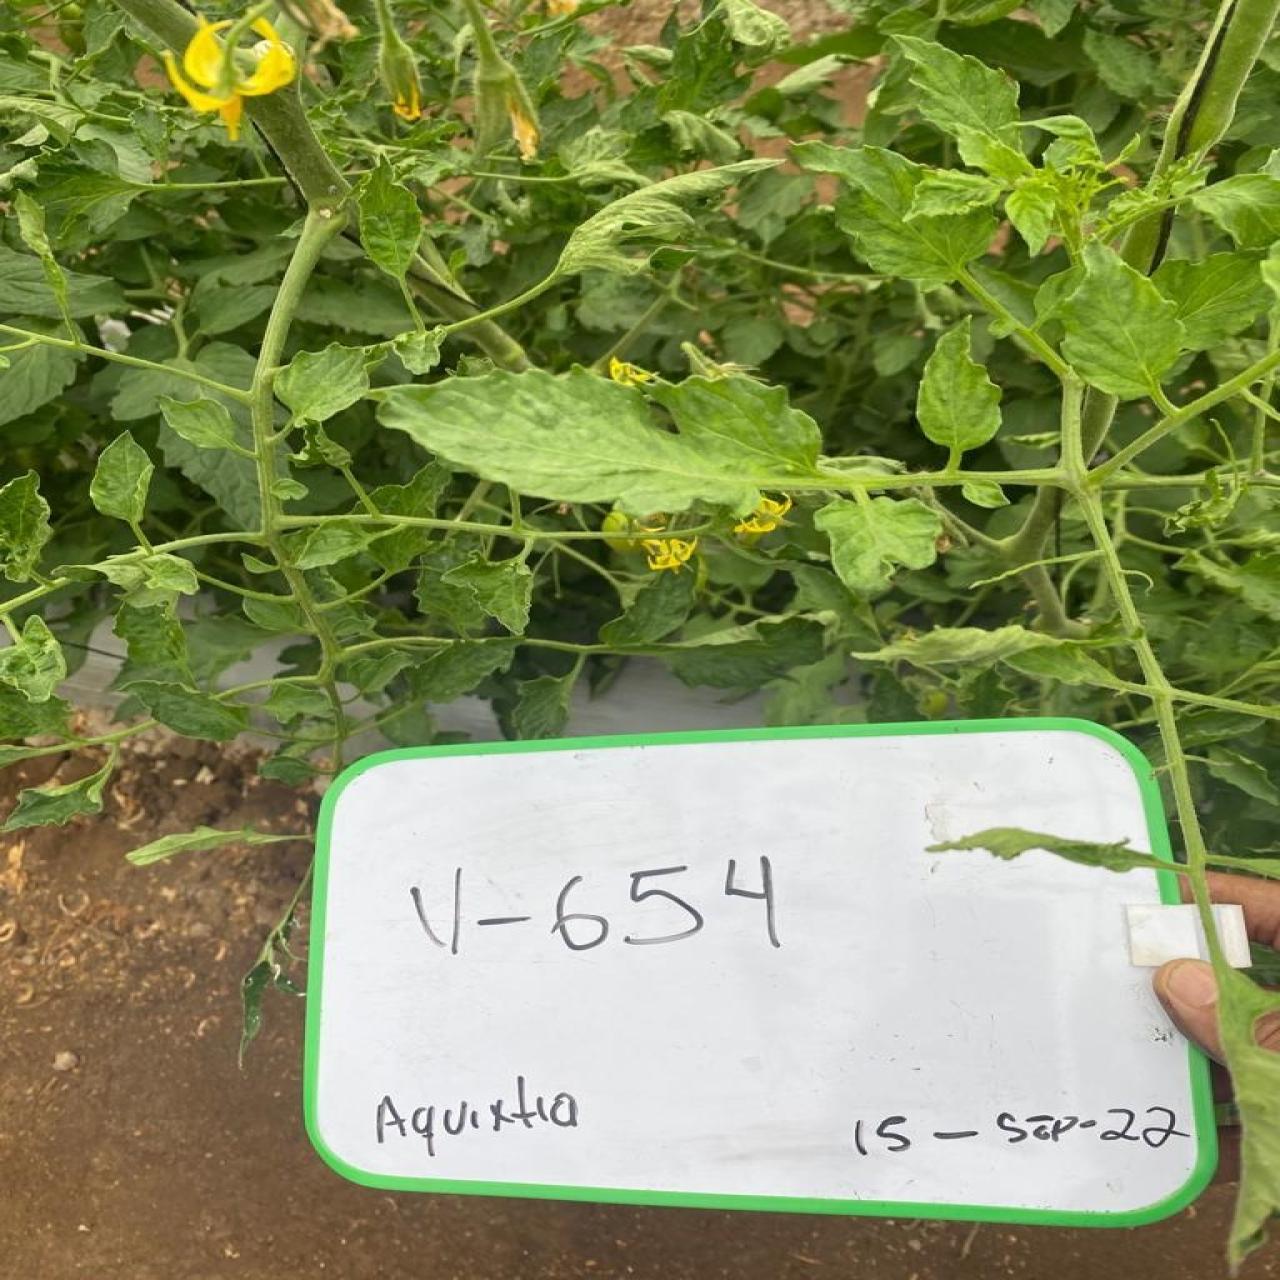 V-654
Aquixtla
15-Sep-22